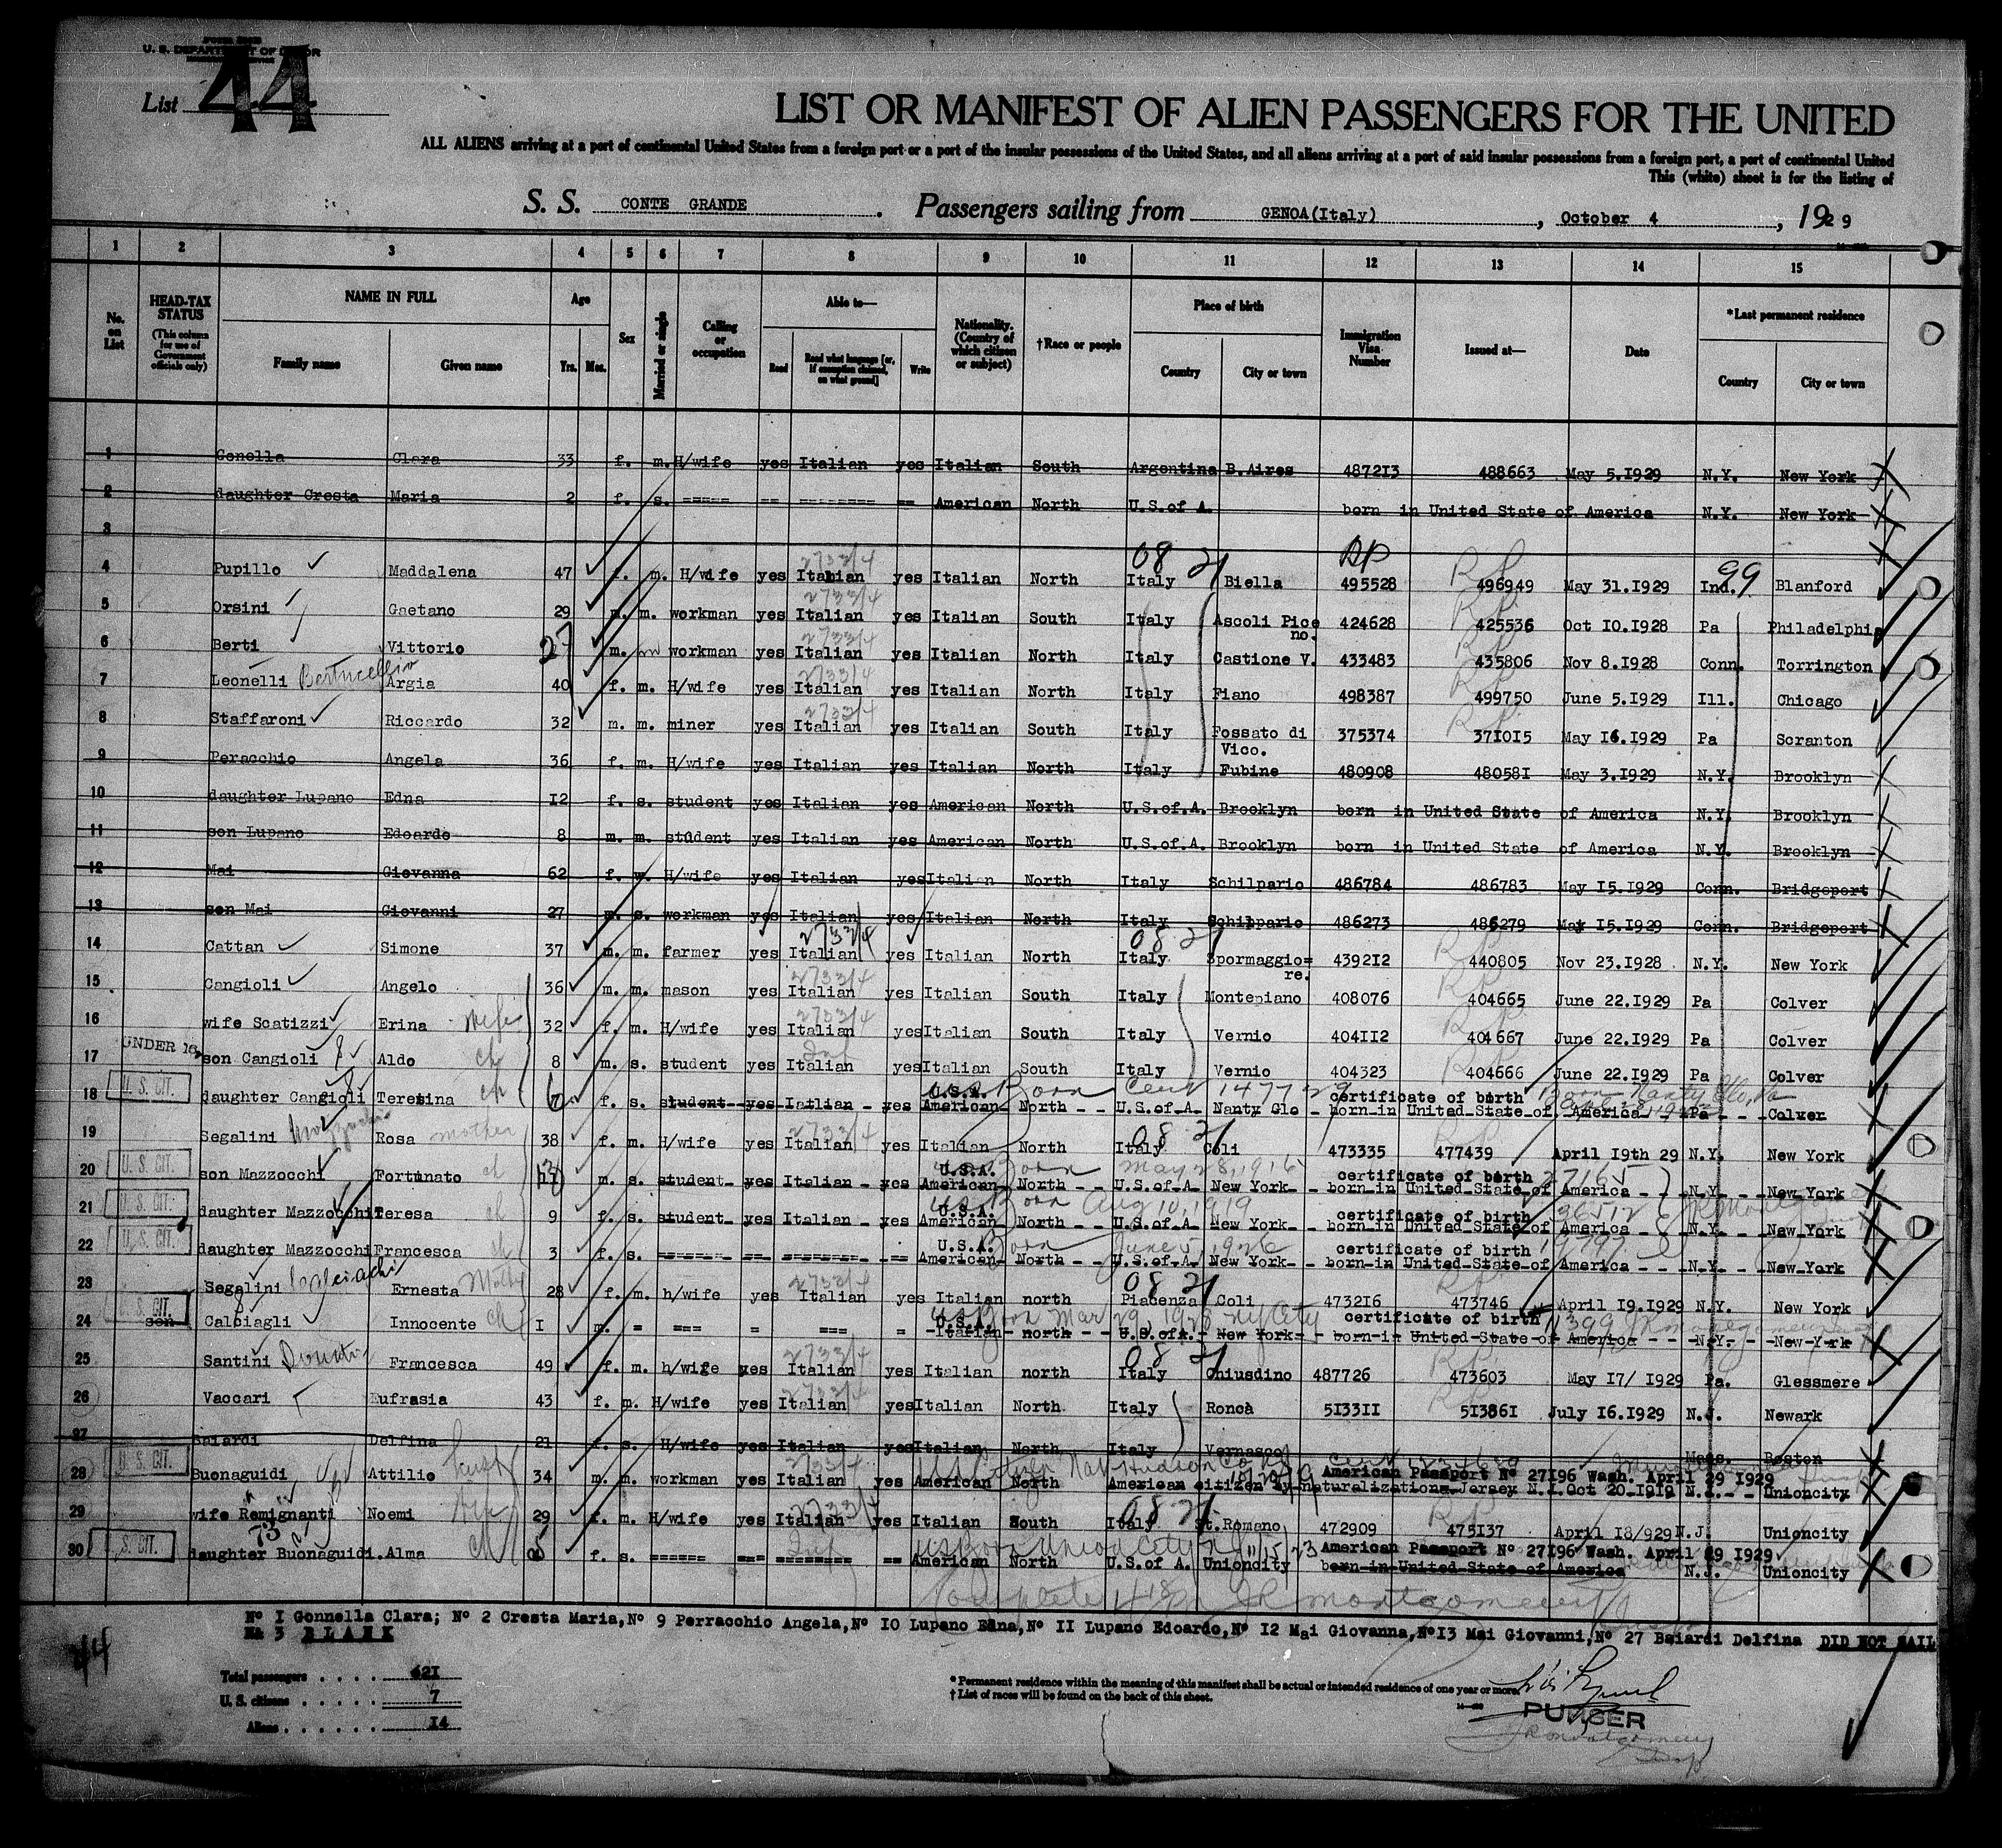 U. S. DEPARTMENT OF LABOR
List 44
LIST OR MANIFEST OF ALIEN PASSENGERS FOR THE UNITED
ALL ALIENS arriving at a port of continental United States from a foreign port or a port of the insular possessions of the United States, and all aliens arriving at a port of said insular possessions from a foreign port, a port of continental United
This (white) sheet is for the listing of
S. S. CONTE GRANDE . Passengers sailing from GENOA(Italy) , October 4 , 1929
1 2 3 4 5 6 7 8 9 10 11 12 13 14 15
No. on List
HEAD-TAX STATUS (This column for use of Government officials only)
NAME IN FULL Family name Given name
Age Yrs. Mos.
Sex
Married or single
Calling or occupation
Able to— Read Read what language [or, if exemption claimed, on what ground] Write
Nationality. (Country of which citizen or subject)
†Race or people
Place of birth Country City or town
Immigration Visa Number
Issued at—
Date
*Last permanent residence Country City or town
1 Gonella Clara 33 f. m. H/wife yes Italian yes Italian South Argentina B.Aires 487213 488663 May 5.1929 N.Y. New York
2 daughter Cresta Maria 2 f. s. ===== == ======== == American North U.S.of A. born in United State of America N.Y. New York
3
4 Pupillo Maddalena 47 f. m. H/wife yes Italian yes Italian North Italy Biella 495528 496949 May 31.1929 Ind. Blanford
5 Orsini Gaetano 29 m. m. workman yes Italian yes Italian South Italy Ascoli Pice no. 424628 425536 Oct 10.1928 Pa Philadelphia
6 Berti Vittorio 27 m. workman yes Italian yes Italian North Italy Castione V. 433483 435806 Nov 8.1928 Conn. Torrington
7 Leonelli Argia 40 f. m. H/wife yes Italian yes Italian North Italy Fiano 498387 499750 June 5.1929 Ill. Chicago
8 Staffaroni Riccardo 32 m. m. miner yes Italian yes Italian South Italy Fossato di Vico. 375374 371015 May 16.1929 Pa Scranton
9 Peracchio Angela 36 f. m. H/wife yes Italian yes Italian North Italy Fubine 480908 480581 May 3.1929 N.Y. Brooklyn
10 daughter Lupano Edna 12 f. s. student yes Italian yes American North U.S.of.A. Brooklyn born in United State of America N.Y. Brooklyn
11 son Lupano Edoardo 8 m. m. student yes Italian yes American North U.S.of.A. Brooklyn born in United State of America N.Y. Brooklyn
12 Mai Giovanna 62 f. w. H/wife yes Italian yes Italian North Italy Schilpario 486784 486783 May 15.1929 Conn. Bridgeport
13 son Mai Giovanni 27 m. s. workman yes Italian yes Italian North Italy Schilpario 486273 486279 May 15.1929 Conn. Bridgeport
14 Cattan Simone 37 m. m. farmer yes Italian yes Italian North Italy Spormaggio= re. 439212 440805 Nov 23.1928 N.Y. New York
15 Cangioli Angelo 36 m. m. mason yes Italian yes Italian South Italy Montepiano 408076 404665 June 22.1929 Pa Colver
16 wife Scatizzi Erina wife 32 f. m. H/wife yes Italian yes Italian South Italy Vernio 404112 404667 June 22.1929 Pa Colver
UNDER 16
17 son Cangioli Aldo ch 8 m. s. student yes Italian yes Italian South Italy Vernio 404323 404666 June 22.1929 Pa Colver
U. S. CIT. U.S.A. Born certificate of birth
18 daughter Cangioli Teresina ch 6 f. s. student yes Italian yes American North U.S.of.A. Nanty Glo born in United State of America Pa Colver
19 Segalini Rosa mother 38 f. m. H/wife yes Italian yes Italian North Italy Coli 473335 477439 April 19th 29 N.Y. New York
U. S. CIT. U.S.A. Born May 28, 1916 certificate of birth 27165
20 son Mazzocchi Fortunato ch 13 m. s. student yes Italian yes American North U.S.of.A. New York born in United State of America N.Y. New York
U. S. CIT. U.S.A. Born Aug 10, 1919 certificate of birth
21 daughter Mazzocchi Teresa ch 9 f. s. student yes Italian yes American North U.S.of.A. New York born in United State of America N.Y. New York
U. S. CIT. U.S.A. Born June 5 1926 certificate of birth
22 daughter Mazzocchi Francesca ch 3 f. s. ======= == ======== == American North U.S.of.A. New York born in United State of America N.Y. New York
23 Segalini Ernesta 28 f. m. h/wife yes Italian yes Italian north Piacenza Coli 473216 473746 April 19.1929 N.Y. New York
U. S. CIT. U.S.A. Born Mar 29, 1928 certificate of birth
24 son Calciagli Innocente ch 1 m. = === = === = Italian north U.S.of A. New York born in United State of America N.Y. New York
25 Santini Francesca 49 f. m. h/wife yes Italian yes Italian north Italy Chiusdino 487726 473603 May 17/ 1929 Pa. Glessmere
26 Vaccari Eufrasia 43 f. m. H/wife yes Italian yes Italian North Italy Roncà 513311 513861 July 16.1929 N.J. Newark
27 Baiardi Delfina 21 f. s. H/wife yes Italian yes Italian North Italy Vernasco Mass. Boston
U. S. CIT. American Passport Nº 27196 Wash. April 29 1929
28 Buonaguidi Attilio 34 m. m. workman yes Italian yes American North American citizen by naturalizationa Jersey N.J. Oct 20-1919 N.J. Unioncity
29 wife Remignanti Noemi 29 f. m. H/wife yes Italian yes Italian South Italy St.Romano 472909 475137 April 18/929 N.J. Unioncity
U. S. CIT. American Passport Nº 27196 Wash. April 29 1929
30 daughter Buonaguidi. Alma ch 5 f. s. ====== === ======== == American North U.S.of A. Unioncity born in United State of America N.J. Unioncity
Nº 1 Gonnella Clara; Nº 2 Cresta Maria,Nº 9 Perracchio Angela,Nº 10 Lupano Edna,Nº 11 Lupano Edoardo,Nº 12 Mai Giovanna,Nº13 Mai Giovanni,Nº 27 Baiardi Delfina DID NOT SAIL
Nº 3 BLANK
44
Total passengers . . . . 621
U. S. citizens . . . . . 7
Aliens . . . . . . 14
* Permanent residence within the meaning of this manifest shall be actual or intended residence of one year or more.
† List of races will be found on the back of this sheet.
PURSER